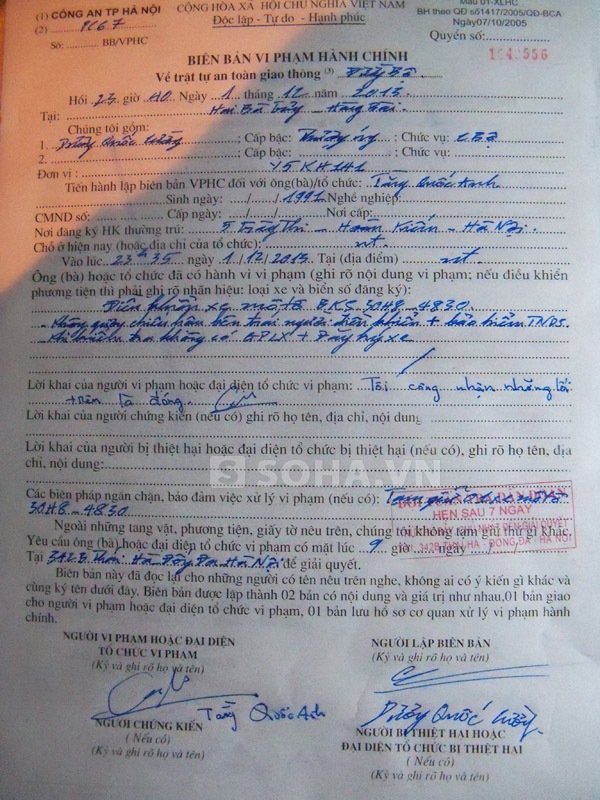 (1) CÔNG AN TP HÀ NỘI
CỘNG HÒA XÃ HỘI CHỦ NGHĨA VIỆT NAM
Độc lập - Tự do - Hạnh phúc
Mẫu 01-XLHC
BH theo QĐ số1417/2005/QĐ-BCA
Ngày07/10/2005
(2) PC67
Số: BB/VPHC
Quyển số:
BIÊN BẢN VI PHẠM HÀNH CHÍNH
Về trật tự an toàn giao thông (3) Đường Bộ
Hồi 23 giờ 40 Ngày 1 tháng 12 năm 2013
Tại: Hai Bà Trưng - Hàng Bài
Chúng tôi gồm:
1. Dương Quốc ; Cấp bậc: Thượng úy ; Chức vụ: CBộ
2. ; Cấp bậc: ; Chức vụ:
Đơn vị: Y5 KH141
Tiến hành lập biên bản VPHC đối với ông(bà)/tổ chức: Tăng Quốc Anh
Sinh ngày: / / 1991 Nghề nghiệp:
CMND số: Cấp ngày: / / Nơi cấp:
Nơi đăng ký HK thường trú: 5 - Hoàn Kiếm - Hà Nội
Chỗ ở hiện nay (hoặc địa chỉ của tổ chức): nt
Vào lúc 23h35 ngày 1/12/2013 Tại (địa điểm) nt
Ông (bà) hoặc tổ chức đã có hành vi vi phạm (ghi rõ nội dung vi phạm; nếu điều khiển
phương tiện thì phải ghi rõ nhãn hiệu: loại xe và biển số đăng ký):
Điều khiển xe môtô BKS 30H8-4830
- Không gương chiếu hậu bên trái người điều khiển + bảo hiểm TNDS
- Khi kiểm tra không có GPLX + Đăng ký xe
Lời khai của người vi phạm hoặc đại diện tổ chức vi phạm: Tôi công nhận những lỗi
trên là đúng
Lời khai của người chứng kiến (nếu có) ghi rõ họ tên, địa chỉ, nội dung
Lời khai của người bị thiệt hại hoặc đại diện tổ chức bị thiệt hại (nếu có), ghi rõ họ tên, địa
chỉ, nội dung:
SOHA.VN
Các biện pháp ngăn chặn, bảo đảm việc xử lý vi phạm (nếu có): Tạm giữ xe môtô
30H8-4830
HẸN SAU 7 NGÀY
Ngoài những tang vật, phương tiện, giấy tờ nêu trên, chúng tôi không tạm giữ thứ gì khác.
Yêu cầu ông (bà) hoặc đại diện tổ chức vi phạm có mặt lúc 9 giờ ngày
342B THÁI HÀ - ĐỐNG ĐA - HÀ NỘI
Tại 342B Thái Hà Đống Đa Hà Nội để giải quyết.
Biên bản này đã đọc lại cho những người có tên nêu trên nghe, không ai có ý kiến gì khác và
cùng ký tên dưới đây. Biên bản được lập thành 02 bản có nội dung và giá trị như nhau,01 bản giao
cho người vi phạm hoặc đại diện tổ chức vi phạm, 01 bản lưu hồ sơ cơ quan xử lý vi phạm hành
chính.
NGƯỜI VI PHẠM HOẶC ĐẠI DIỆN
TỔ CHỨC VI PHẠM
(Ký và ghi rõ họ và tên)
NGƯỜI LẬP BIÊN BẢN
(Ký và ghi rõ họ và tên)
Tăng Quốc Anh
Dương Quốc
NGƯỜI CHỨNG KIẾN
(Nếu có)
(Ký và ghi rõ họ và tên)
NGƯỜI BỊ THIỆT HẠI HOẶC
ĐẠI DIỆN TỔ CHỨC BỊ THIỆT HẠI
(Nếu có)
(Ký và ghi rõ họ và tên)